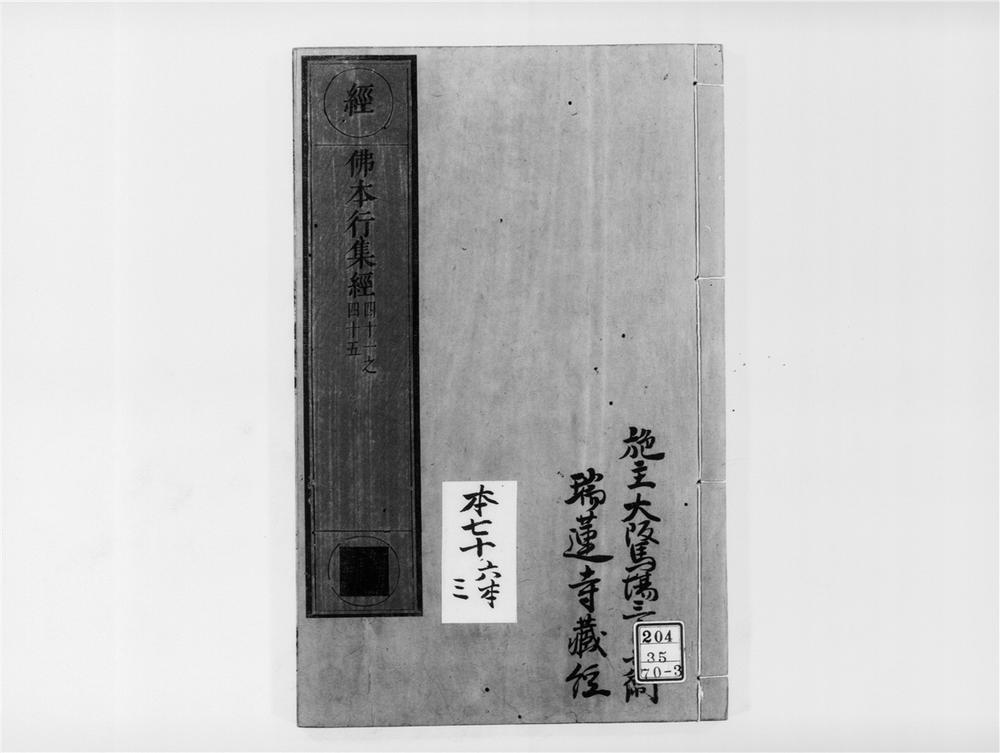 施主大阪馬場三
瑞蓮寺藏經
204
35
70-3
本七十六本
三
經
佛本行集經
四十一之
四十五